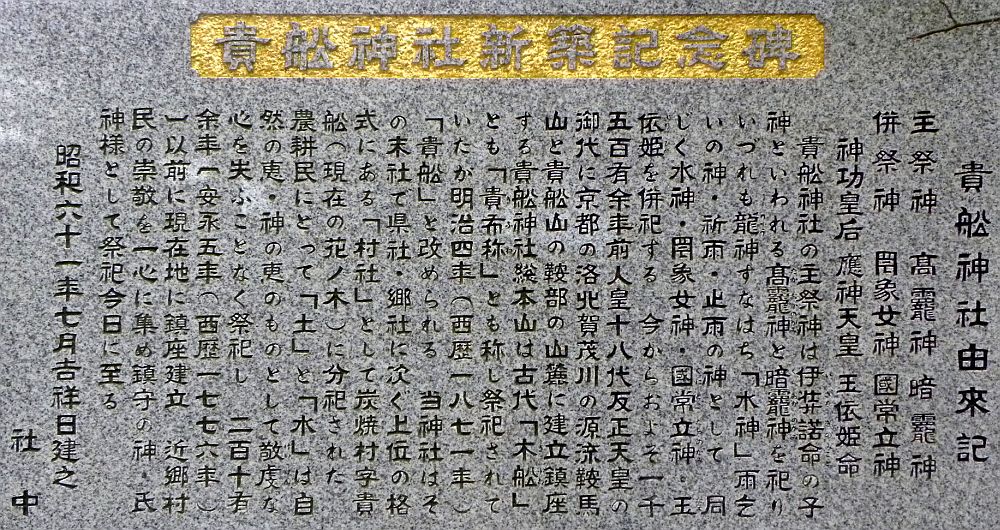 貴舩神社新築記念碑
貴舩神社由來記
主祭神　高龗神　暗龗神
併祭神　罔象女神　國常立神
神功皇后　應神天皇　玉依姫命
貴舩神社の主祭神は伊弉諾命の子
神といわれる高龗神と暗龗神を祀り
いづれも龍神すなはち「水神」雨乞
いの神・祈雨・止雨の神として　同
じく水神・罔象女神・國常立神・玉
依姫を併祀する　今からおよそ一千
五百有余年前人皇十八代反正天皇の
御代に京都の洛北賀茂川の源流鞍馬
山と貴舩山の鞍部の山麓に建立鎮座
する貴舩神社総本山は古代「木舩」
とも「貴布称」とも称し祭祀されて
いたが明治四年（西歴一八七一年）
「貴舩」と改められる　当神社はそ
の末社で県社・郷社に次く上位の格
式にある「村社」として炭焼村字貴
舩（現在の花ノ木）に分祀された
農耕民にとって「土」と「水」は自
然の恵・神の恵のものとして敬虔な
心を失ふことなく祭祀し　二百十有
余年（安永五年（西歴一七七六年）
）以前に現在地に鎮座建立　近郷村
民の崇敬を一心に集め鎮守の神　氏
神様として祭祀今日に至る
昭和六十一年七月吉祥日建之
社中